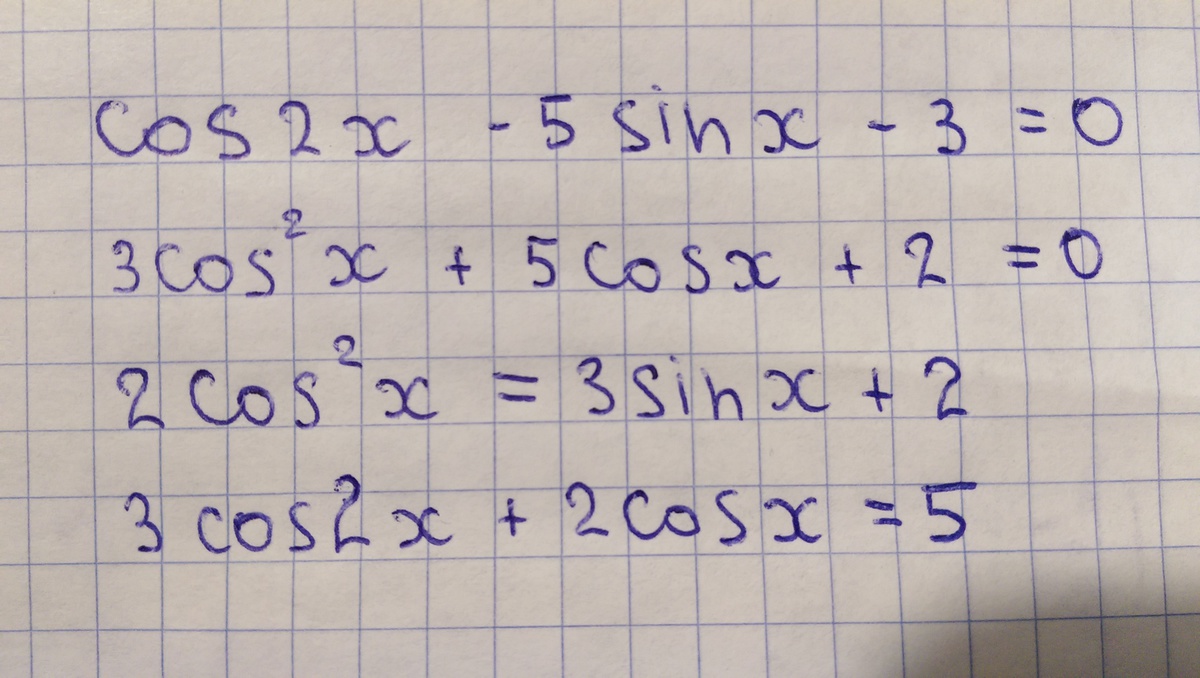 cos2x - 5 sinx - 3 = 0
3cos²x + 5cosx + 2 = 0
2cos²x = 3sinx + 2
3cos2x + 2cosx = 5